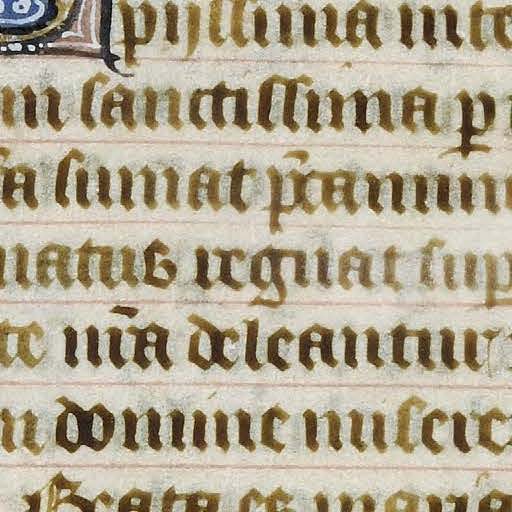 pijssima inte
m sanctissima p
sa sumat p̄camin
natus regnat sup
te nr̄a deleantur
n domine miseric
Beata es maria